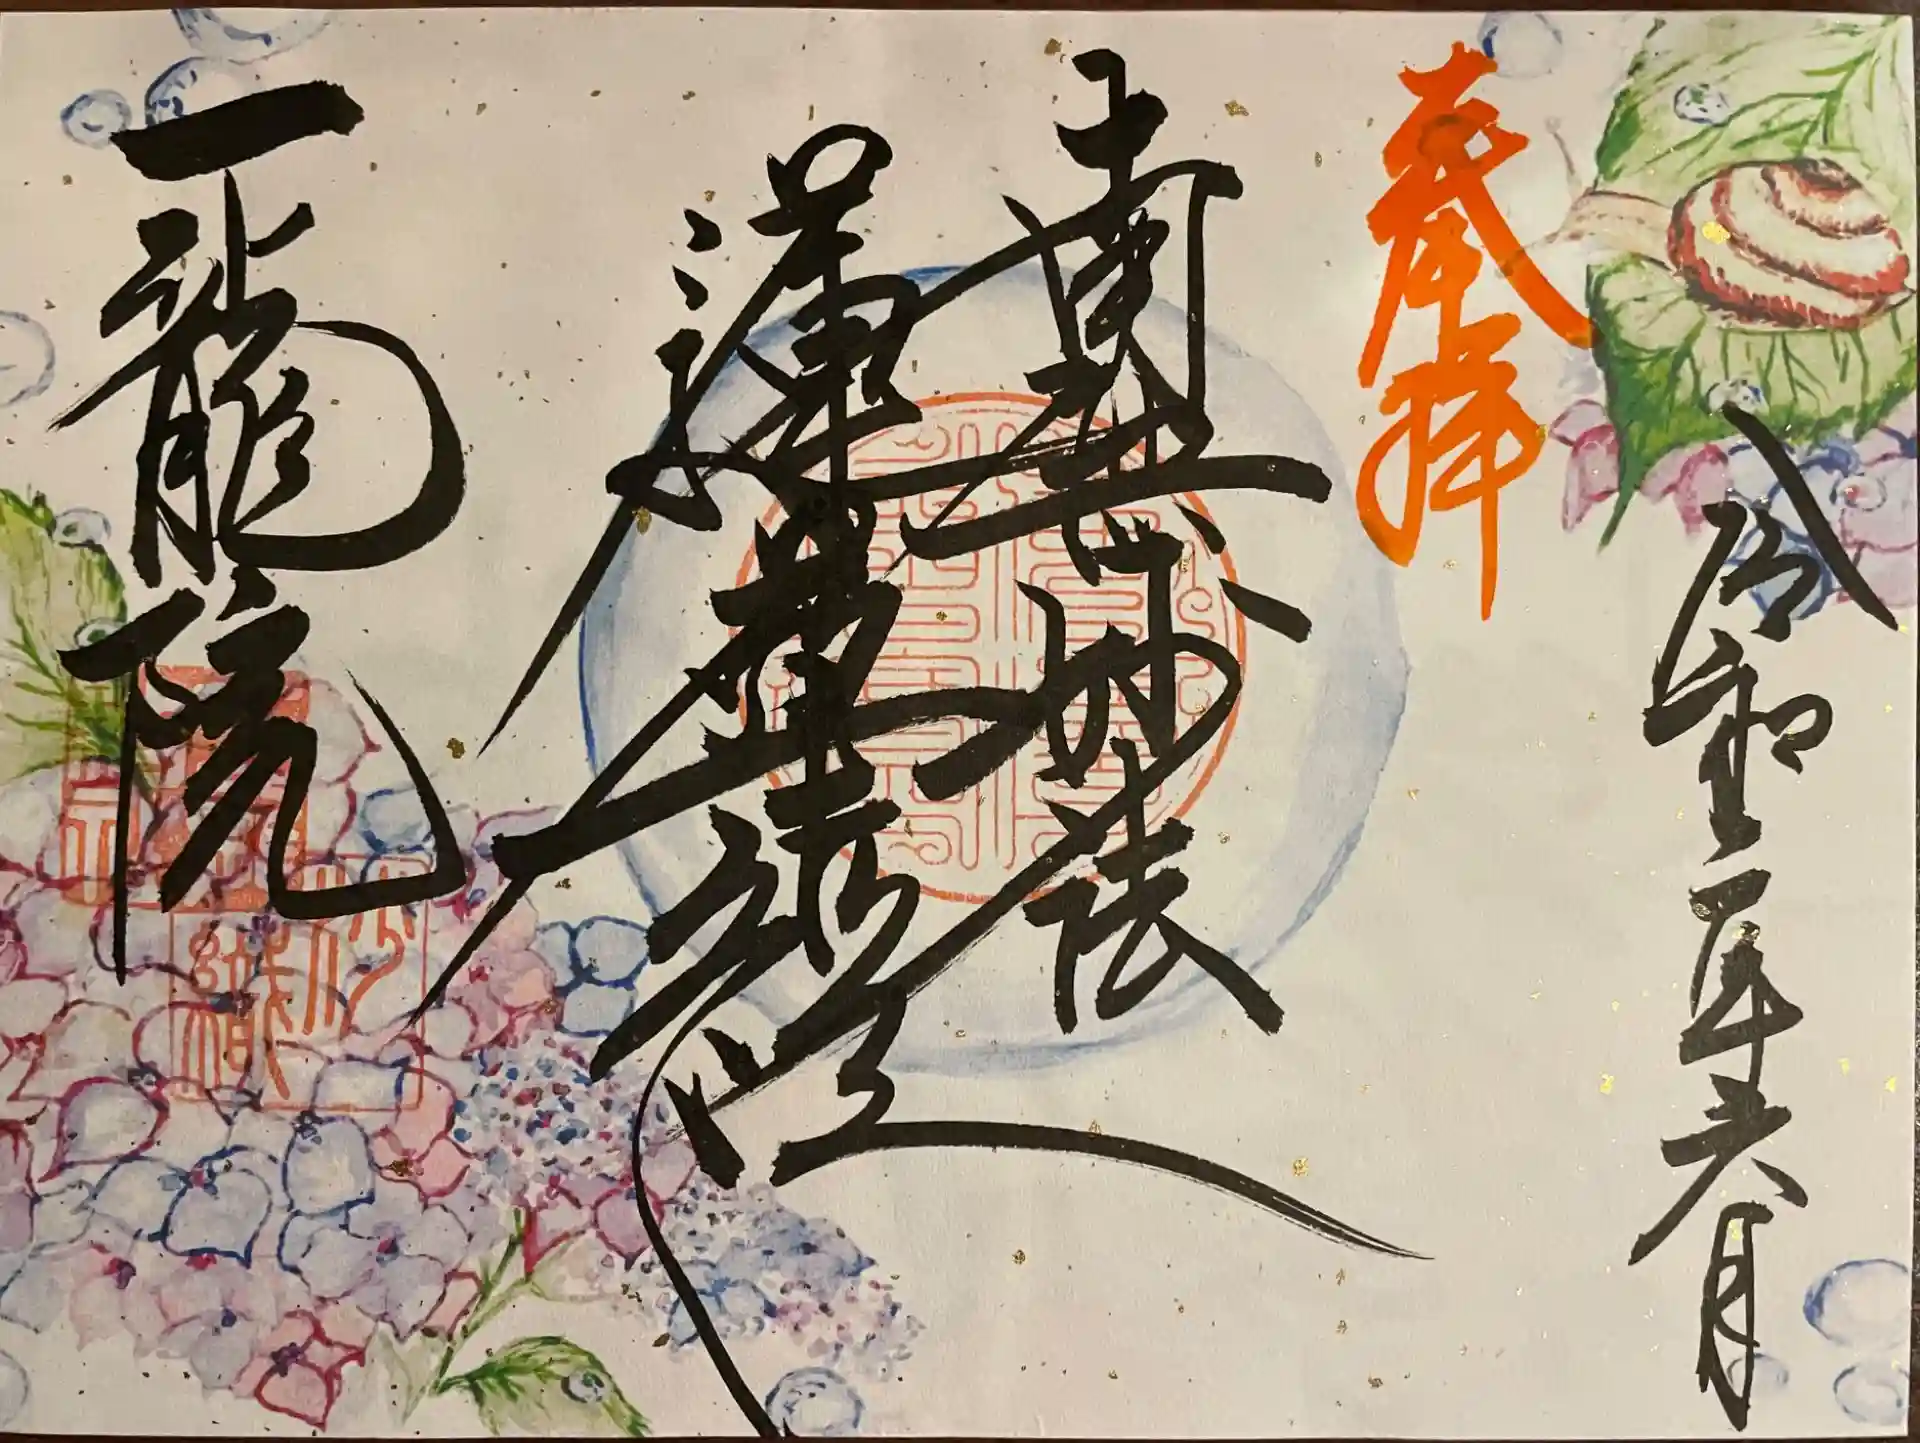 奉拝
令和 年六月
南無妙法
蓮華經
一龍院